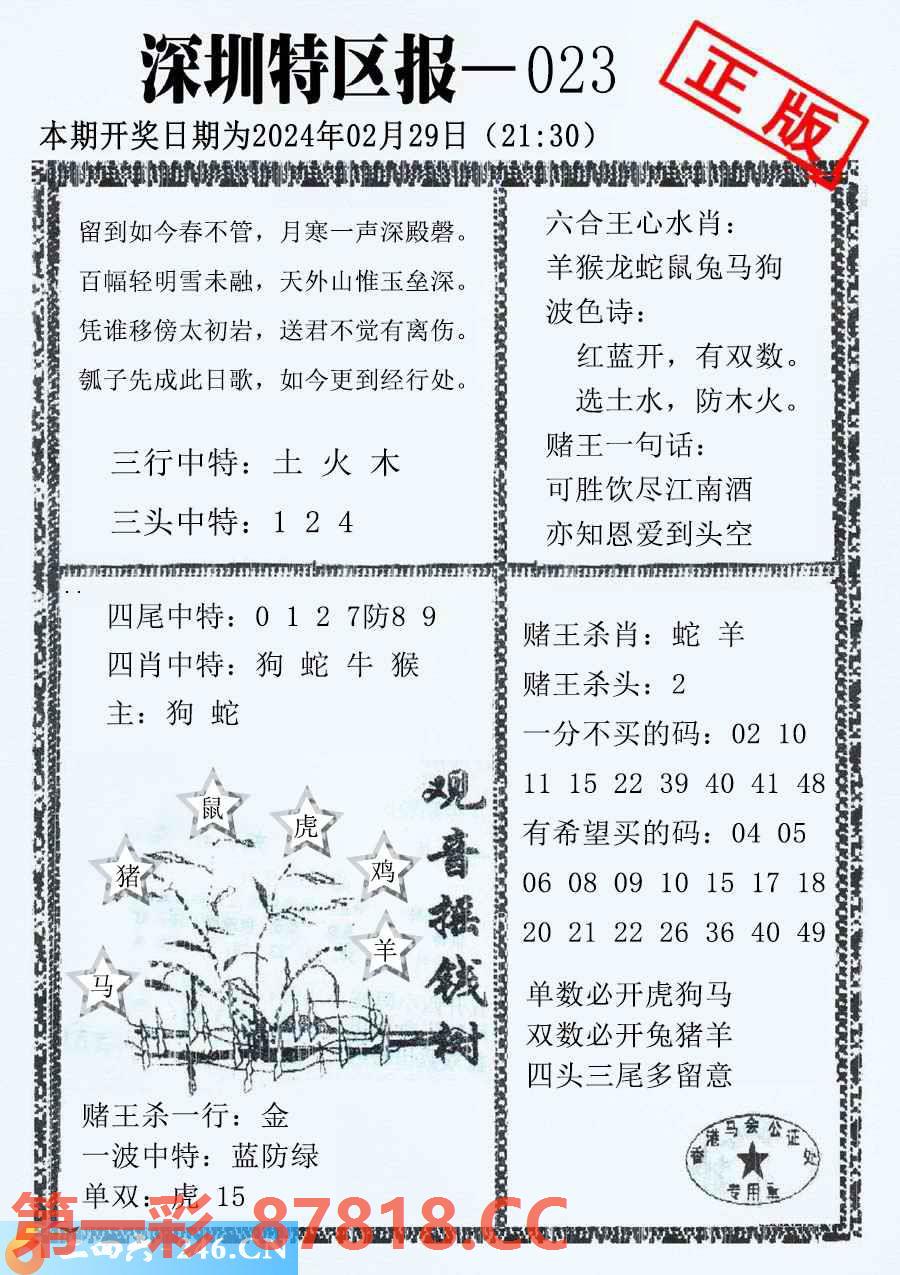 深圳特区报—023
正版
本期开奖日期为2024年02月29日（21:30）
留到如今春不管，月寒一声深殿磬。
百幅轻明雪未融，天外山惟玉垒深。
凭谁移傍太初岩，送君不觉有离伤。
瓠子先成此日歌，如今更到经行处。
三行中特：土 火 木
三头中特：1 2 4
六合王心水肖：
羊猴龙蛇鼠兔马狗
波色诗：
红蓝开，有双数。
选土水，防木火。
赌王一句话：
可胜饮尽江南酒
亦知恩爱到头空
四尾中特：0 1 2 7防8 9
四肖中特：狗 蛇 牛 猴
主：狗 蛇
鼠
虎
猪
鸡
羊
马
观音摇钱树
赌王杀一行：金
一波中特：蓝防绿
单双：虎 15
赌王杀肖：蛇 羊
赌王杀头：2
一分不买的码：02 10
11 15 22 39 40 41 48
有希望买的码：04 05
06 08 09 10 15 17 18
20 21 22 26 36 40 49
单数必开虎狗马
双数必开兔猪羊
四头三尾多留意
香港马会公证处
专用章
第一彩 87818.CC
246.CN